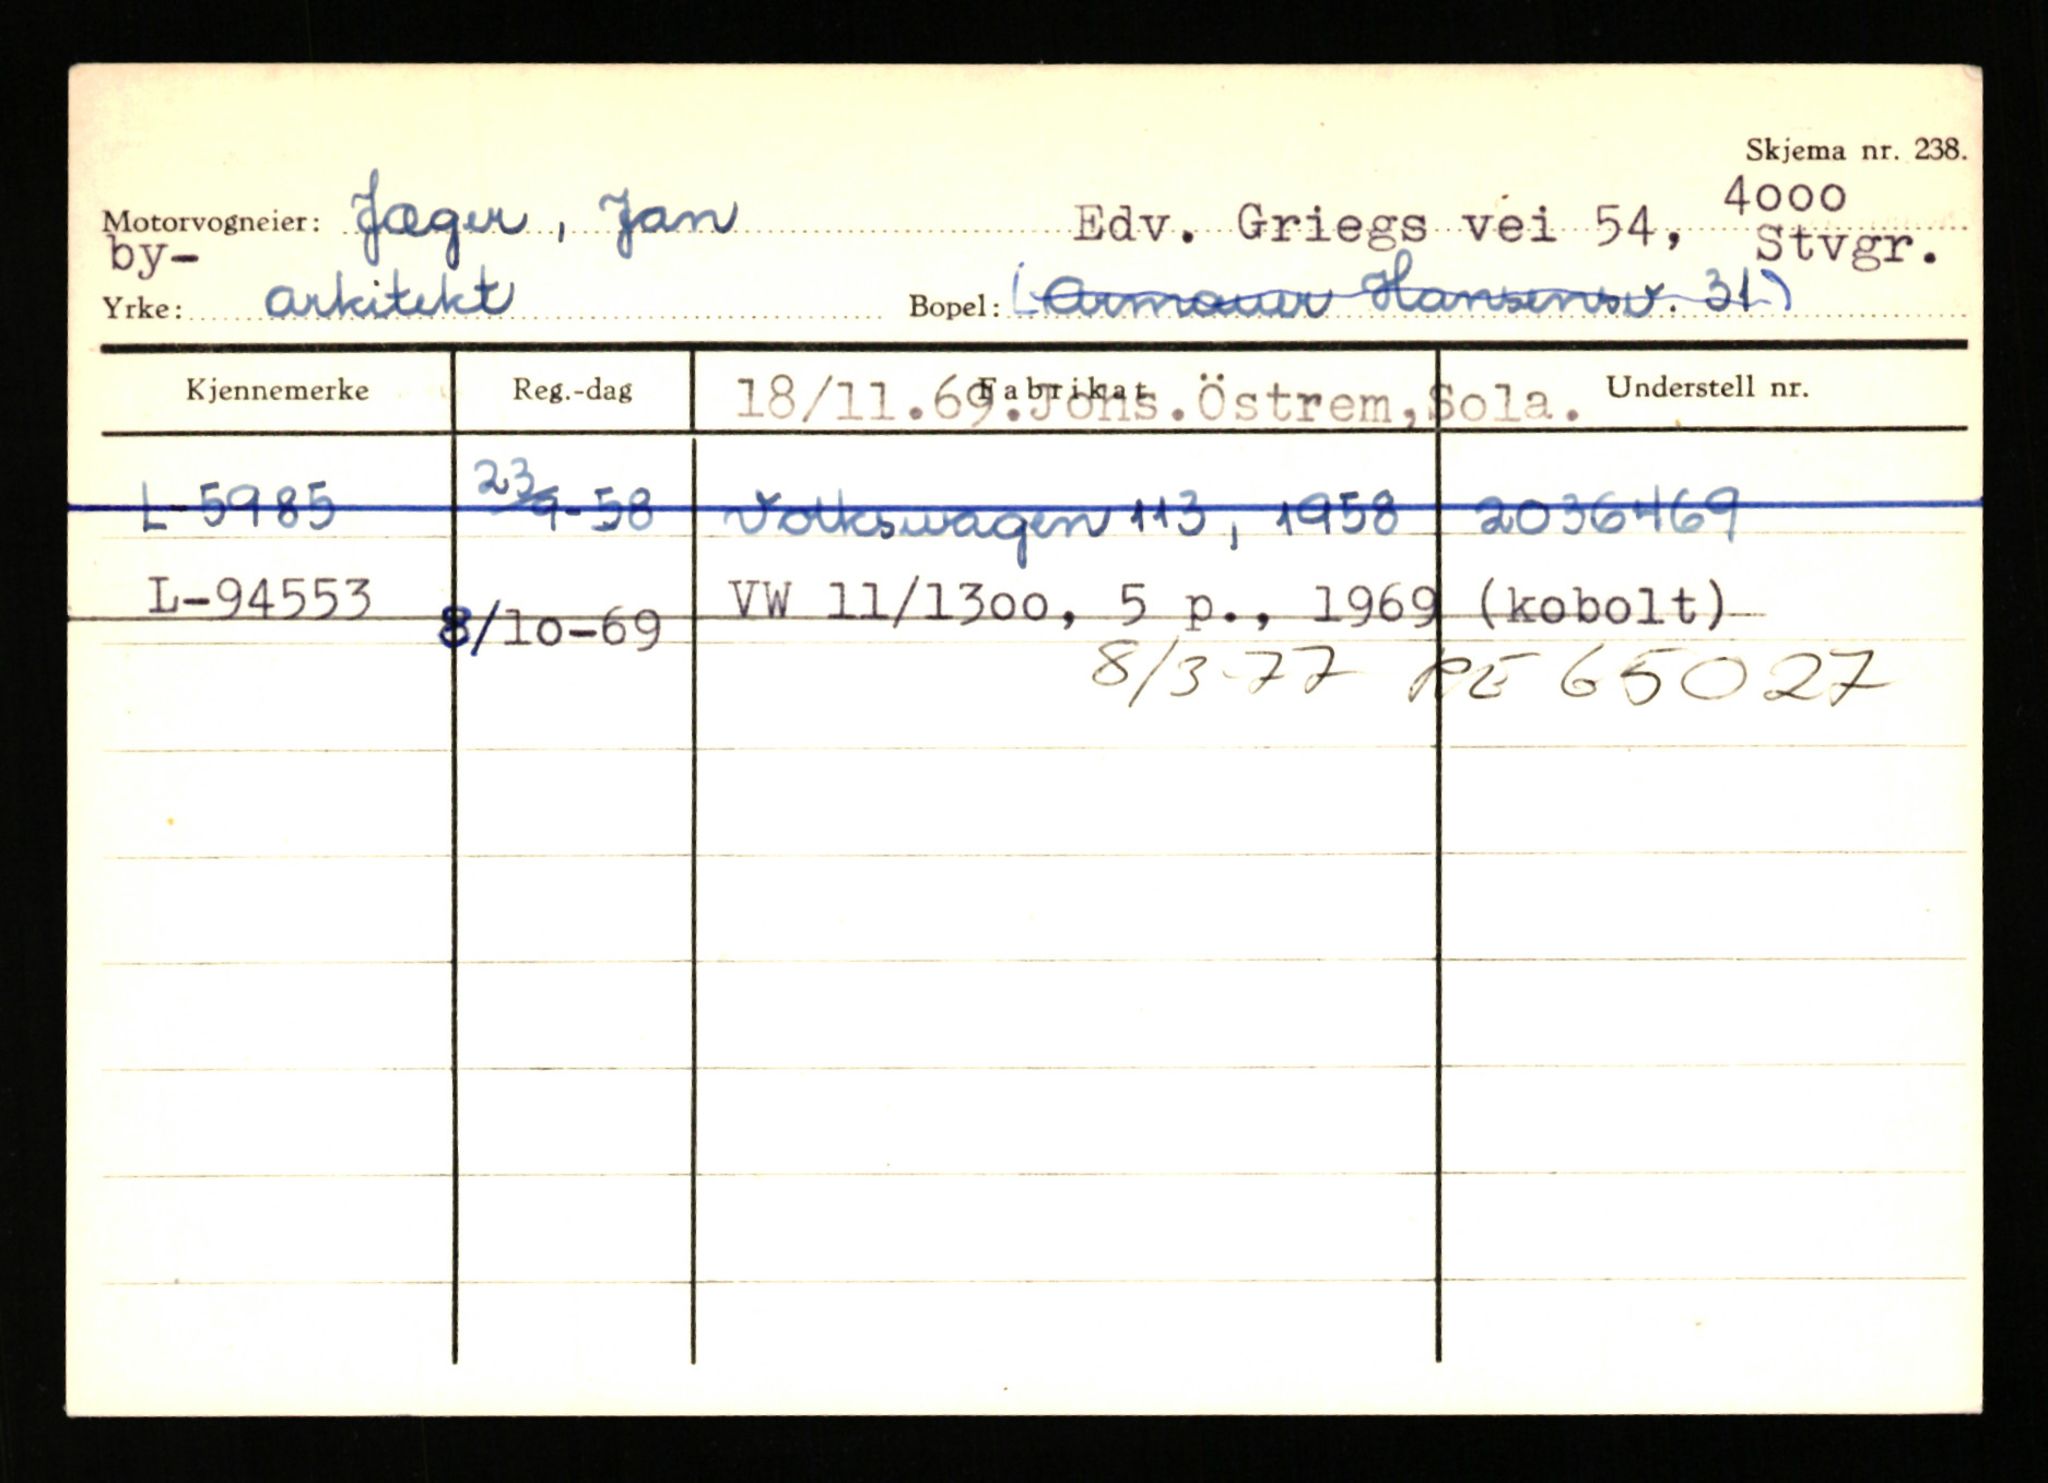 Skjema nr. 238.
Motorvogneier: Jæger, Jan Edv. Griegs vei 54, 4000 Stvgr.
by-
Yrke: arkitekt Bopel: (Armauer Hansensv. 31)
Kjennemerke Reg.-dag Fabrikat Understell nr.
18/11.69.Johs.Östrem,Sola.
L-5985 23/9-58 Volkswagen 113, 1958 2036469
L-94553 8/10-69 VW 11/1300, 5 p., 1969 (kobolt)
8/3-77 RE 65027